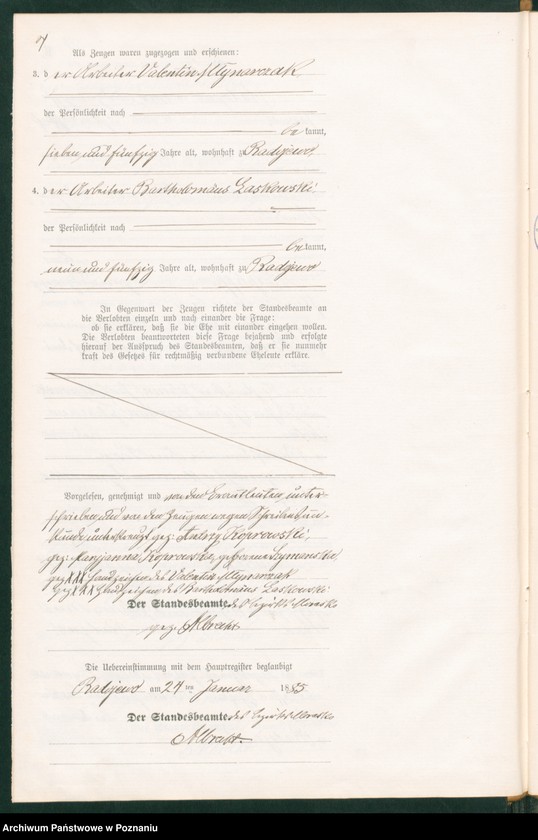 Als Zeugen waren zugezogen und erschienen:
3. der Arbeiter Valentin Mynarczak
der Persönlichkeit nach
be kannt,
sieben und fünfzig Jahre alt, wohnhaft zu Radzewo
4. der Arbeiter Bartholomäus Laskowski
der Persönlichkeit nach
be kannt,
neun und fünfzig Jahre alt, wohnhaft zu Radzewo
In Gegenwart der Zeugen richtete der Standesbeamte an
die Verlobten einzeln und nach einander die Frage:
ob sie erklären, daß sie die Ehe mit einander eingehen wollen.
Die Verlobten beantworteten diese Frage bejahend und erfolgte
hierauf der Ausspruch des Standesbeamten, daß er sie nunmehr
kraft des Gesetzes für rechtmäßig verbundene Eheleute erkläre.
Vorgelesen, genehmigt und von den Brautleuten unter-
schrieben und von den Zeugen wegen Schreibensun-
kunde unterkreuzt gez: Koprowski,
gez: Maryanna Koprowska, geborene Szymanska
gez XXX Handzeichen des Valentin Mynarczak
gez XXX Handzeichen des Bartholomäus Laskowski
Der Standesbeamte des Bezirks
gez. Albrecht
Die Uebereinstimmung mit dem Hauptregister beglaubigt
Radzewo am 24 ten Januar 1885
Der Standesbeamte des Bezirks
Albrecht.
Archiwum Państwowe w Poznaniu